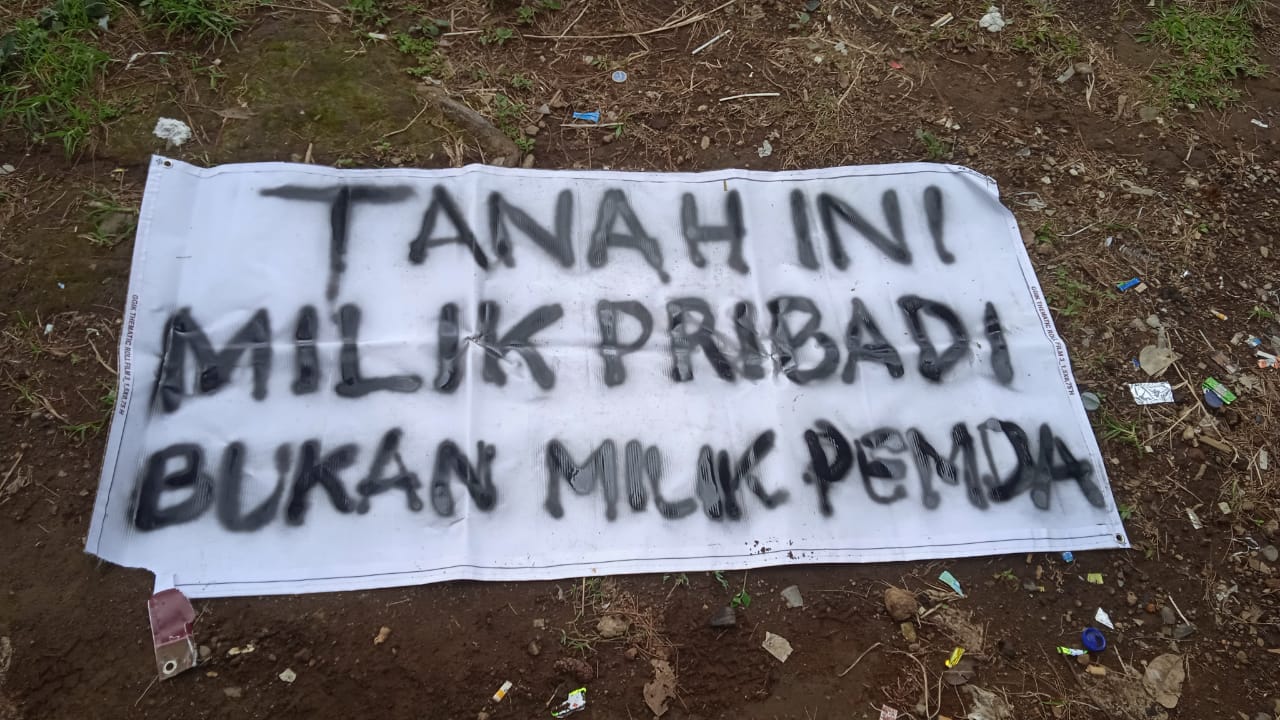 TANAH INI
MILIK PRIBADI
BUKAN MILIK PEMDA